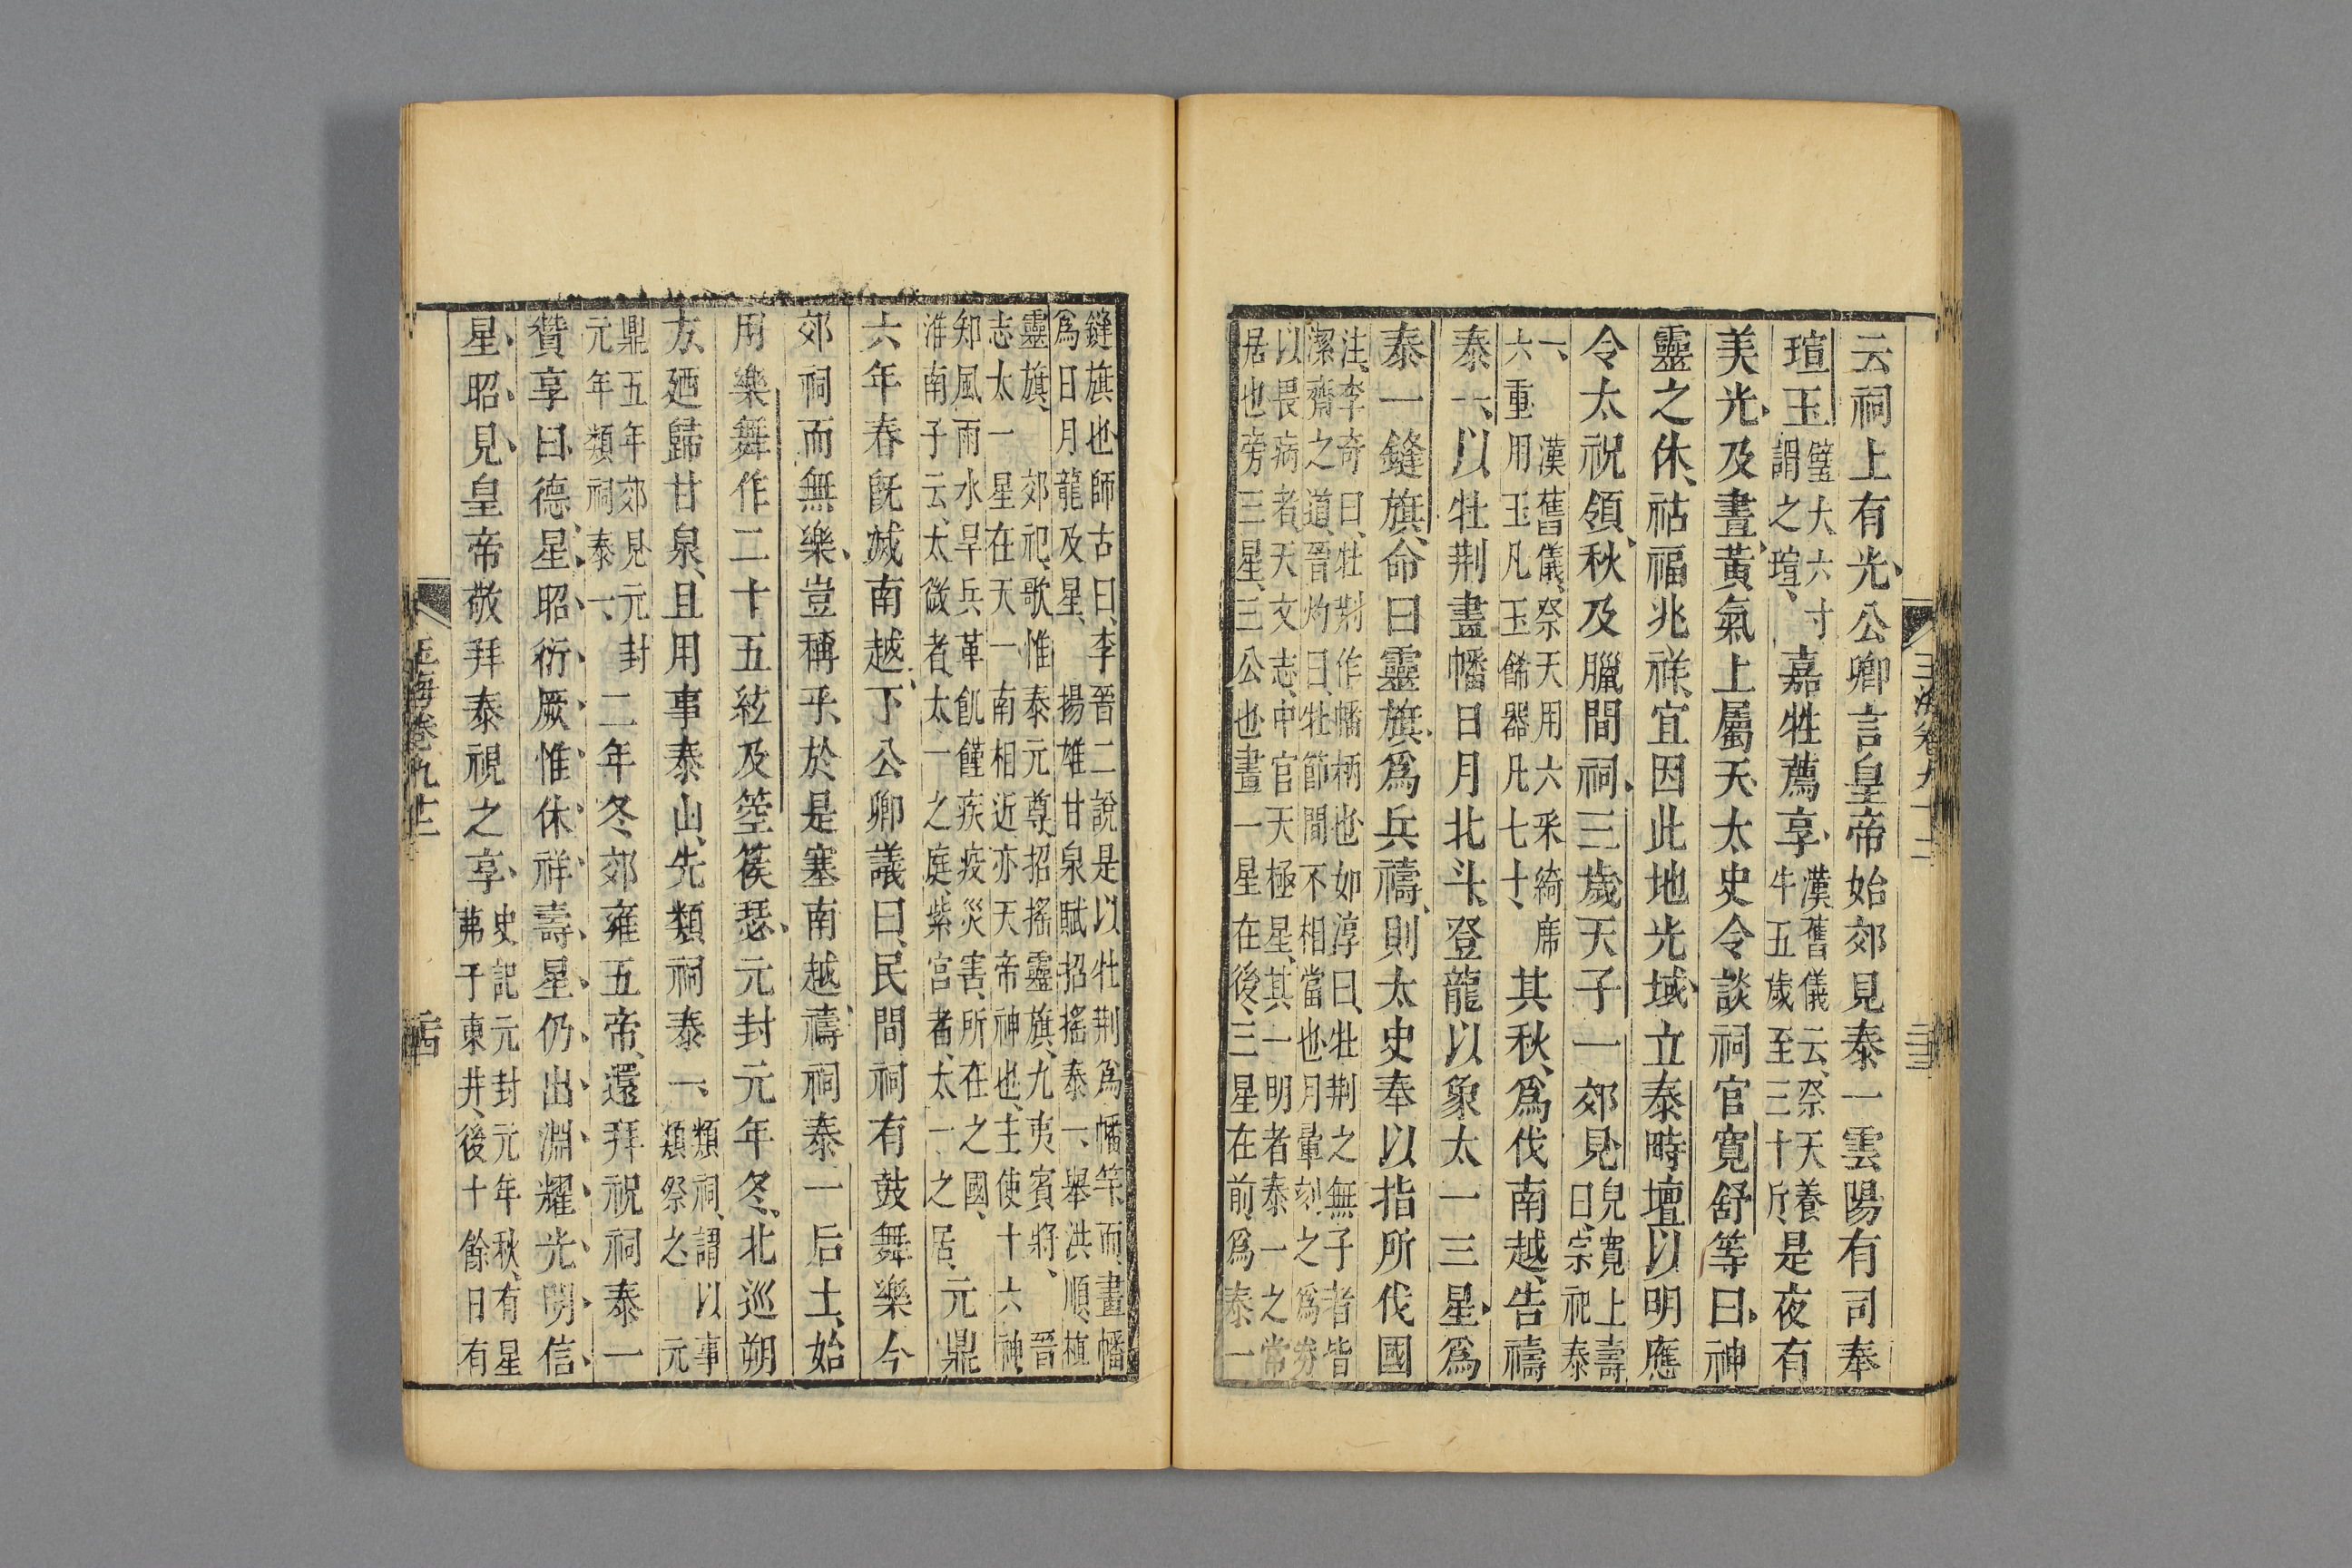 玉海卷九十二
二十三
云祠上有光公卿言皇帝始郊見泰一雲陽有司奉
瑄玉璧大六寸謂之瑄、嘉牲薦享、漢舊儀云、祭天養牛五歲至三十斤、是夜有
美光、及晝、黃氣上屬天、太史令談祠官寬舒等曰、神
靈之休、祐福兆祥、宜因此地光域、立泰畤壇以明應
令太祝領、秋及臘間祠、三歲天子一郊見兒寬上壽曰、宗祀泰
一、漢舊儀、祭天用六采綺席六重用玉凡玉餙器凡七十、其秋、爲伐南越、告禱
泰一、以牡荆畫幡日月北斗、登龍以象太一三星、爲
泰一鏠旗、命曰靈旗、爲兵禱、則太史奉以指所伐國
注、李奇曰、牡荆作幡柄也如淳曰、牡荆之無子者皆
潔齊之道、晉灼曰、牡節間不相當也月暈刻之爲券
以畏病者、天文志、中官天極星、其一明者泰一之常
居也旁三星、三公也畫一星在後、三星在前、爲泰一
鏠旗也師古曰、李晉二說是以牡荆爲幡竿、而畫幡
爲日月龍及星、揚雄甘泉賦招搖泰一、舉洪頤、植
靈旗、郊祀、歌惟泰元尊、招搖靈旗、九夷賓將、晉
志太一星在天一南相近亦天帝神也、主使十六神、
知風雨水旱兵革飢饉疾疫災害、所在之國、
淮南子云、太微者、太一之庭、紫宮者、太一之居、元鼎
六年春旣滅南越、下公卿議曰、民間祠有鼓舞樂今
郊祠而無樂、豈稱乎、於是塞南越、禱祠泰一后土、始
用樂舞作二十五絃及箜篌瑟、元封元年冬、北巡朔
方、廼歸甘泉、且用事泰山、先類祠泰一、類祠、謂以事類祭之元
鼎五年郊見元封元年類祠泰一、二年冬、郊雍五帝、還拜祝祠泰一
贊享曰、德星昭衍、厥惟休祥、壽星仍出、淵耀光明、信
星昭見、皇帝敬拜泰祝之享、史記元封元年秋、有星茀于東井、後十餘日有
玉海卷九十二
二十四